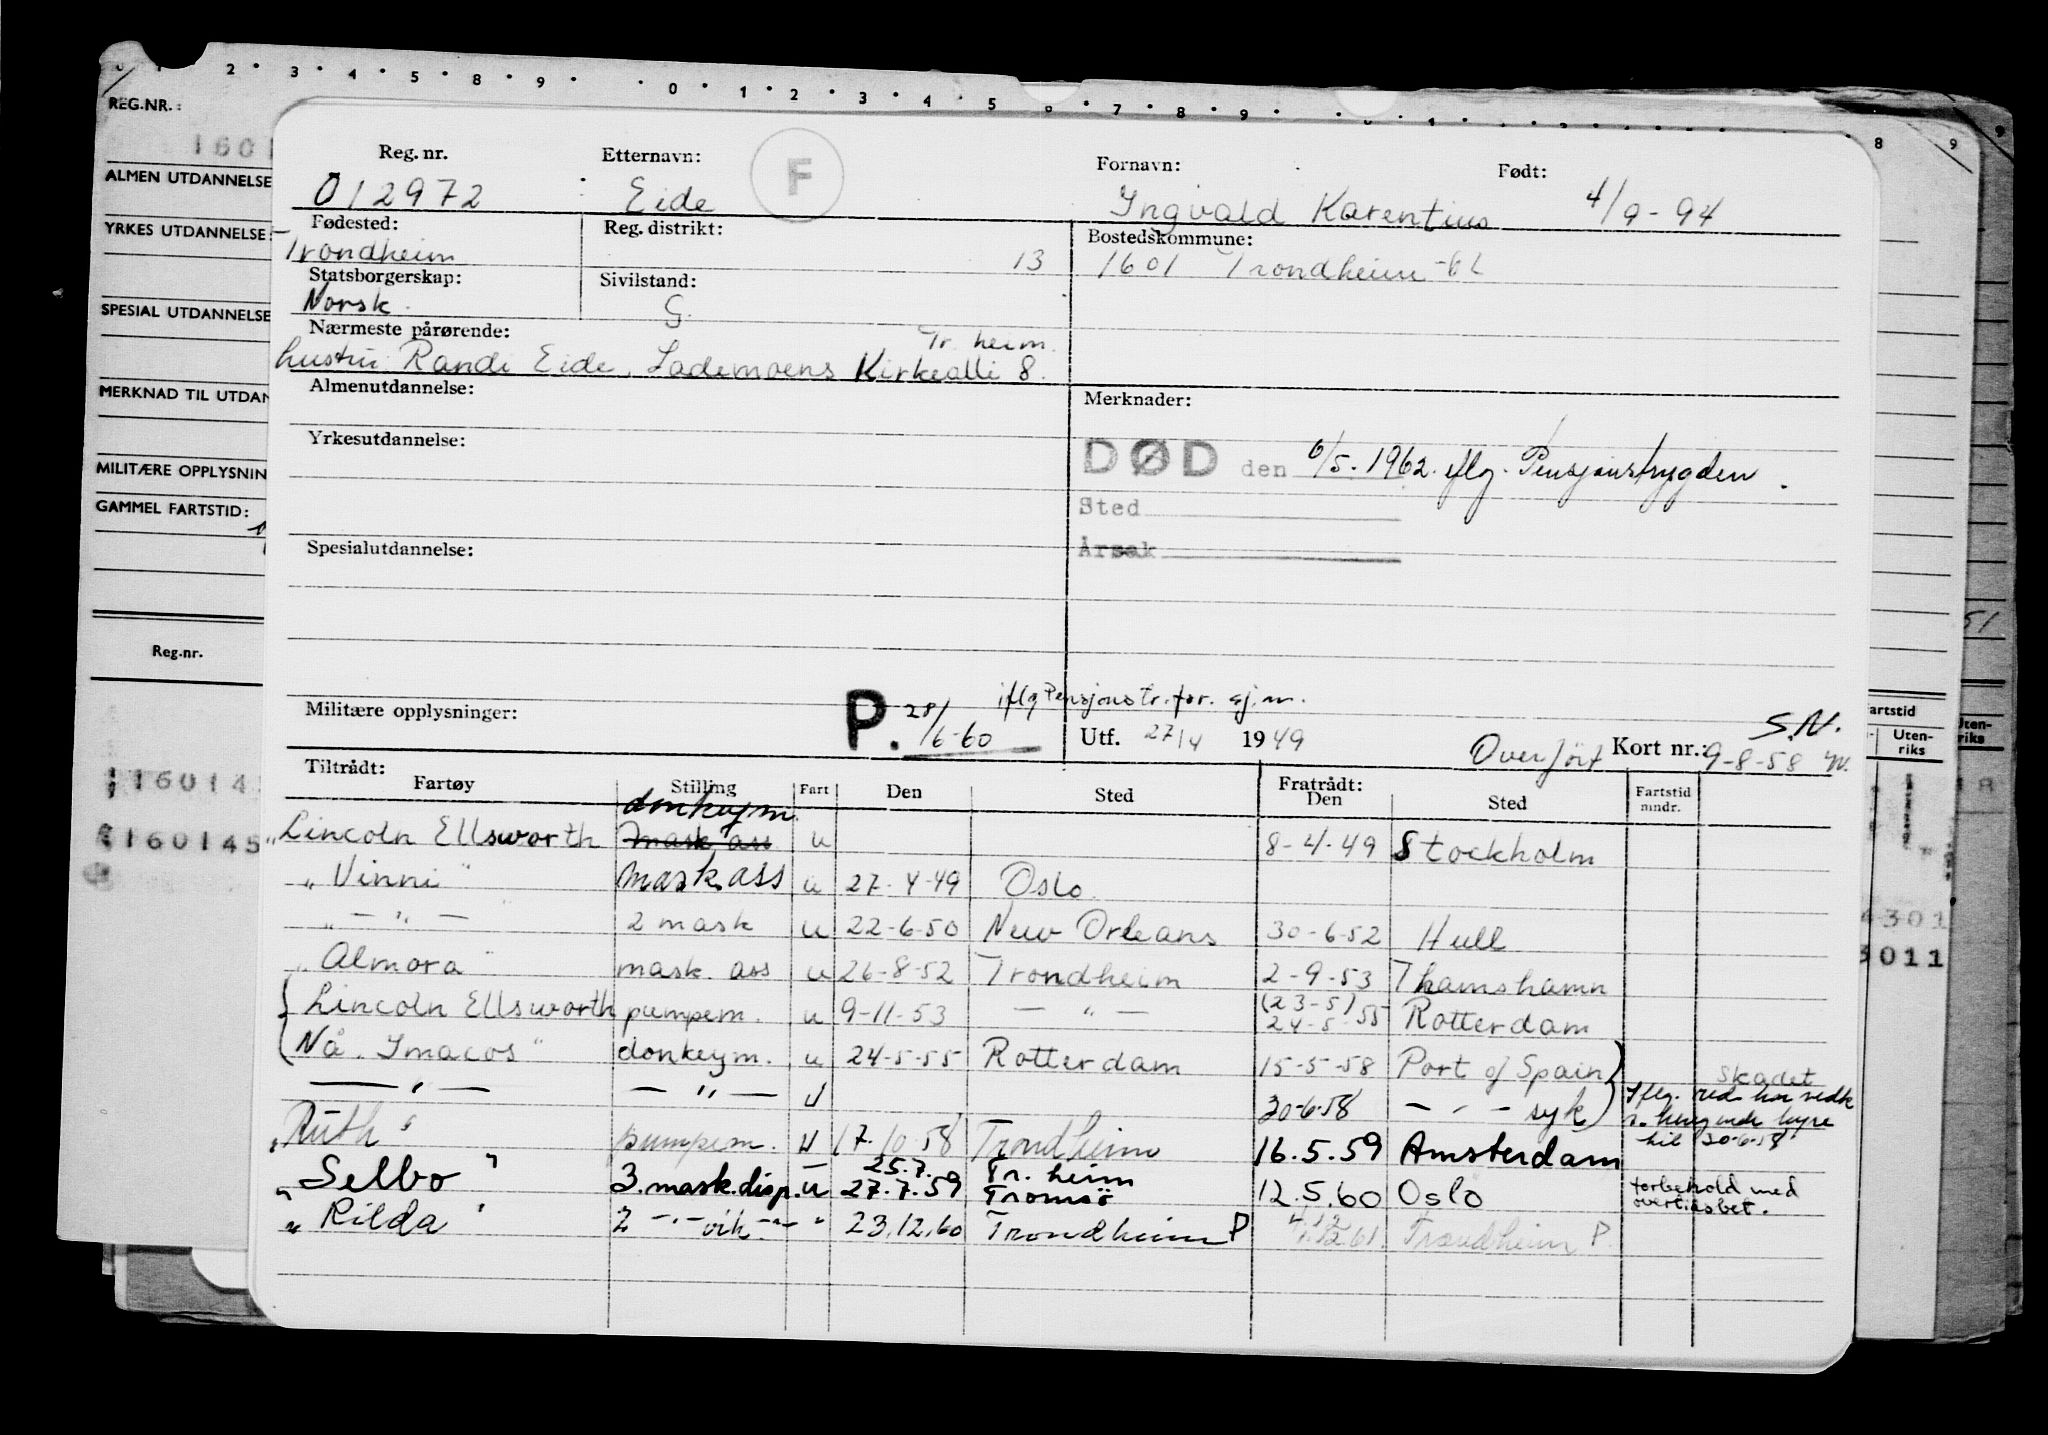 2 · 3 · 4 · 5 · 8 · 9 · · 0 · 1 · 2 · 3 · 4 · 5 · 6 · 7 · 8 · 9 ·
8 9
REG.NR.:
1601
ALMEN UTDANNELSE
YRKES UTDANNELSE:
SPESIAL UTDANNELSE
MERKNAD TIL UTDAN
MILITÆRE OPPLYSNIN
GAMMEL FARTSTID:
Reg.nr.
16014
160145
Reg. nr. Etternavn: F Fornavn: Født:
012972 Eide Ingvald Karentius 4/9-94
Fødested: Reg. distrikt: Bostedskommune:
Trondheim 13 1601 Trondheim -62
Statsborgerskap: Sivilstand:
Norsk. G.
Nærmeste pårørende: Tr. heim.
hustru Randi Eide, Lademoens Kirkealle 8.
Almenutdannelse: Merknader:
Yrkesutdannelse:
DØD den 6/5-1962 iflg. Pensjonstrygden.
Sted
Spesialutdannelse: Årsak
Militære opplysninger: P. 28/6-60 iflg Pensjonstr. for. sj.m.
Utf. 27/4 1949 Overført Kort nr.: 9-8-58 S.N.
Tiltrådt: Fratrådt:
Fartøy Stilling Fart Den Sted Den Sted Fartstid mndr.
"Lincoln Ellsworth donkeym. mask ass u 8-4-49 Stockholm
"Vinni" mask ass u 27-4-49 Oslo.
" — " — 2 mask u 22-6-50 New Orleans 30-6-52 Hull
"Almora" mask. ass u 26-8-52 Trondheim 2-9-53 Thamshamn
Lincoln Ellsworth pumpem. u 9-11-53 — " — (23-5) 24-5-55 Rotterdam
Nå "Imacos" donkeym. u 24-5-55 Rotterdam 15-5-58 Port of Spain skadet
— " — — " — u 30-6-58 — " — syk Iflg. red. har
til 30-6-58
"Ruth" pumpem. u 17.10.58 Trondheim 16.5.59 Amsterdam
"Selbo" 3. mask. disp. u 25.7. 27.7.59 Tr. heim Tromsø 12.5.60 Oslo forbehold med overt.asbet.
"Rilda" 2 — " — vik. — " — " 23.12.60 Trondheim P 4.12.61. Trondheim P.
51
artstid
Uten-
riks
Uten-
riks
18
4301
3011